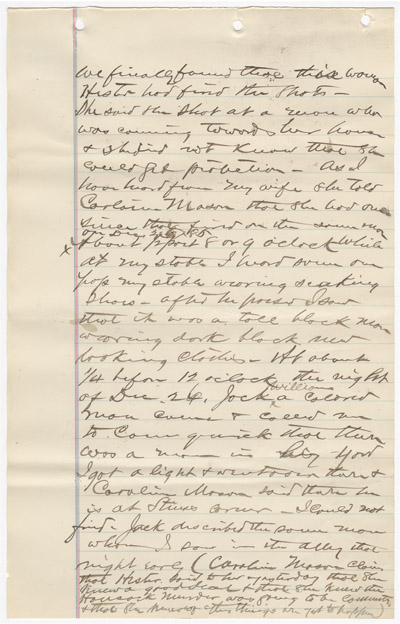 We finally found that this woman
Hester had fired the shots –
She said she shot at a man who
was coming towards her house
& she did not know that she
could get protection – As I
have heard from my wife she told
Caroline Mason that she had once
since that fired on the same man
on Dec 24, 85
x About ½ past 8 or 9 o'clock while
at my stable I heard some one
pass my stable wearing squeaking
shoes – after he passed I saw
that it was a tall black man
wearing dark black new
looking clothes – At about
¼ before 12 o'clock the night
of Dec. 24, Jack Williams a colored
man came & called me
to come quick that there
was a man in his yard
I got a light & went over there &
Caroline Mason said there he
is at corner – I could not
find – Jack described the same man
whom I saw in the alley that
night early (Caroline Mason claims
that Hester said to her yesterday that she
knew a good deal & that she knew the
Hancock murder was going to be committed
& that she knows of other things are yet to happen)